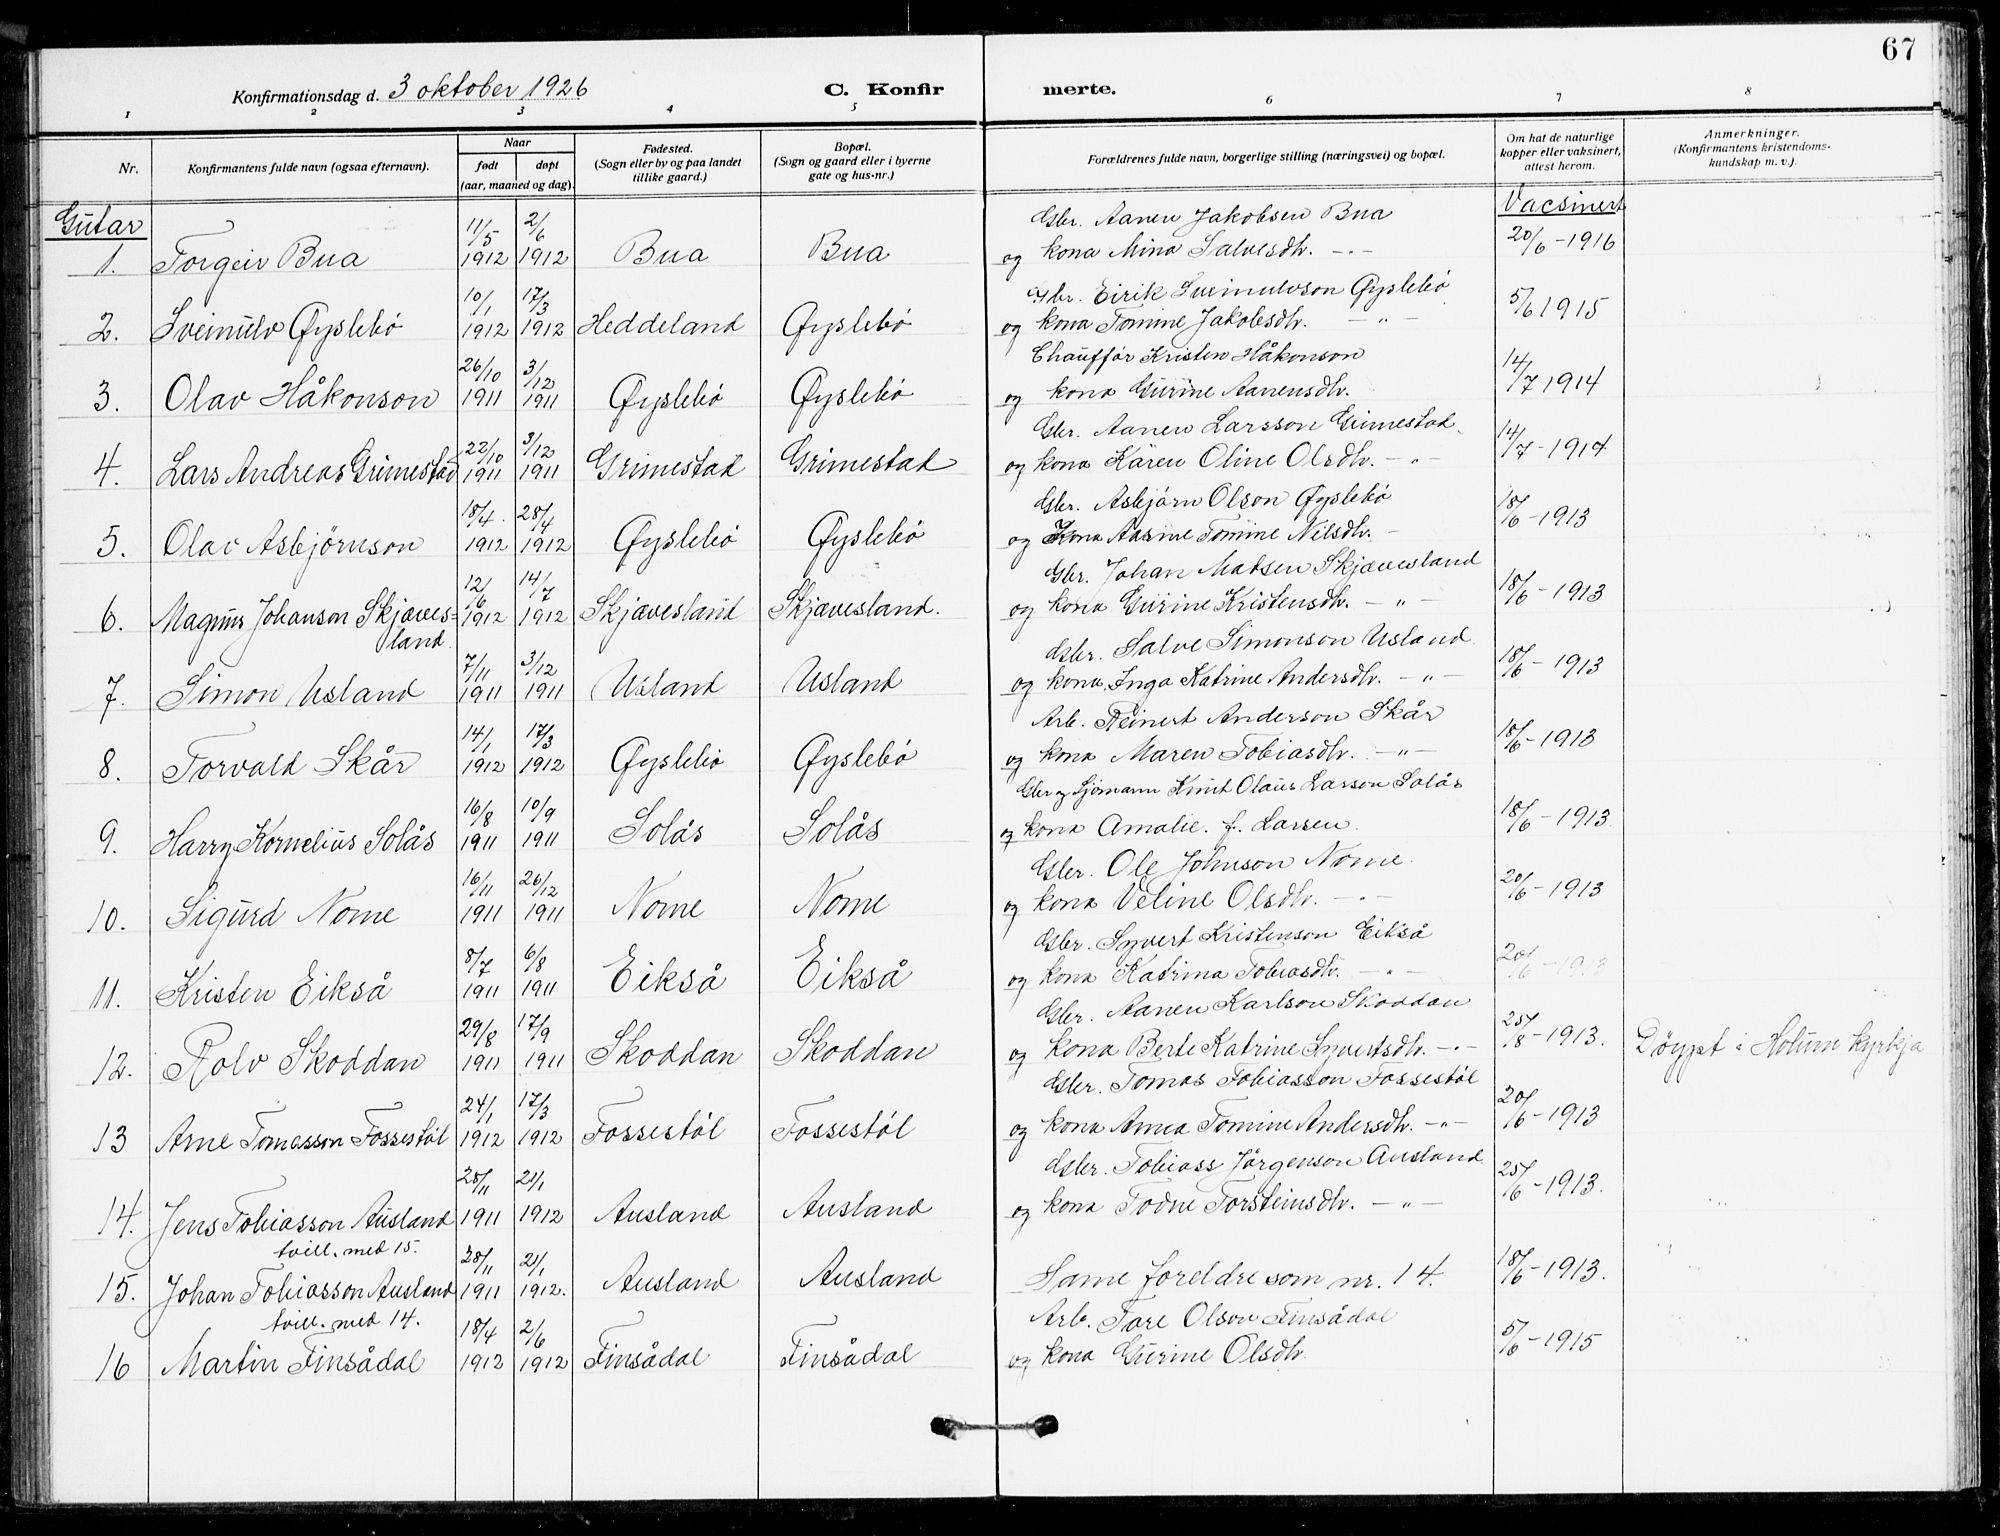 67
Konfirmationsdag d. 3 oktober 1926 C. Konfirmerte.
1 2 3 4 5 6 7 8
Nr. Konfirmantens fulde navn (ogsaa efternavn). Naar født døpt (aar, maaned og dag). Fødested. (Sogn eller by og paa landet tillike gaard.) Bopæl. (Sogn og gaard eller i byerne gate og hus-nr.) Forældrenes fulde navn, borgerlige stilling (næringsvei) og bopæl. Om hat de naturlige kopper eller vaksinert, attest herom. Anmerkninger. (Konfirmantens kristendomskundskap m. v.).
Gutar Vacsinert
11/5 2/6 Gbr. Aanen Jakobsen Bua
1. Torgeir Bua 1912 1912 Bua Bua og kona Mina Salvesdtr. -"- 20/6 - 1916
10/1 17/3 Gbr. Eirik Sveinulvson Øyslebø
2. Sveinulv Øyslebø 1912 1912 Heddeland Øyslebø og kona Tomine Jakobsdtr. -"- 5/6 1915
26/10 3/12 Chauffør Kristen Håkonson
3. Olav Håkonson 1911 1911 Øyslebø Øyslebø og kona Gurine Aanensdtr. 14/7 1914
22/10 3/12 Gbr. Aanen Larsson Grimestad.
4. Lars Andreas Grimestad 1911 1911 Grimestad Grimestad og kona Karen Oline Olsdtr. -"- 14/7 - 1914
18/4 28/4 Gbr. Asbjørn Olson Øyslebø
5. Olav Asbjørnson 1912 1912 Øyslebø Øyslebø og Kona Aasine Tomine Nilsdtr. - 18/6 - 1913
12/6 14/7 Gbr. Johan Matsen Skjævesland
6. Magnus Johanson Skjæves= 1912 1912 Skjævesland Skjævesland. og kona Gurine Kristensdtr. -"- 18/6 - 1913
land.
7/11 3/12 Gbr. Salve Simonson Usland
7. Simon Usland 1911 1911 Usland Usland og kona Inga Katrine Andersdtr. -"- 18/6 - 1913
14/1 17/3 Arb. Reinert Anderson Skår
8. Torvald Skår 1912 1912 Øyslebø Øyslebø og kona Maren Tobiasdtr. -"- 18/6 - 1913
16/8 10/9 Gbr og Sjømann Knut Olaus Larson Solås
9. Harry Kornelius Solås 1911 1911 Solås Solås og kona Amalie. f. Larsen. 18/6 - 1913
16/11 26/12 Gbr. Ole Johnson Nome.
10. Sigurd Nome 1911 1911 Nome Nome og kona Veline Olsdtr. -"- 20/6 - 1913
8/7 6/8 Gbr. Syvert Kristenson Eikså
11. Kristen Eikså 1911 1911 Eikså Eikså og kona Katrina Tobiasdtr. -"- 20/6 - 1913
29/8 17/9 Gbr. Aanen Karlson Skoddan
12. Rolv Skoddan 1911 1911 Skoddan Skoddan og kona Berte Katrine Syvertsdtr. -"- 25/8 - 1913. Døypt i Holum kyrkja
24/1 17/3 Gbr. Tomas Tobiasson Fossestøl
13 Arne Tomasson Fossestøl 1912 1912 Fossestøl Fossestøl og kona Anna Tomine Andersdtr. -"- 20/6 - 1913
28/11 21/1 Gbr. Tobiass Jørgenson Ausland
14. Jens Tobiasson Ausland 1911 1912 Ausland Ausland og kona Todne Torsteinsdtr. -"- 25/6 - 1913.
tvill. med 15.
28/11 21/1
15. Johan Tobiasson Ausland 1911 1912. Ausland Ausland Same foreldre som nr. 14. 18/6 - 1913.
tvill. med 14.
18/4 2/6 Arb. Tore Olson Finsådal
16 Martin Finsådal 1912 1912 Finsådal Finsådal og kona Gurine Olsdtr. 5/6 - 1915